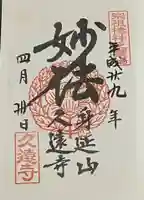 平成廿九年
妙法
身延山
久遠寺
四月卅日
久遠寺